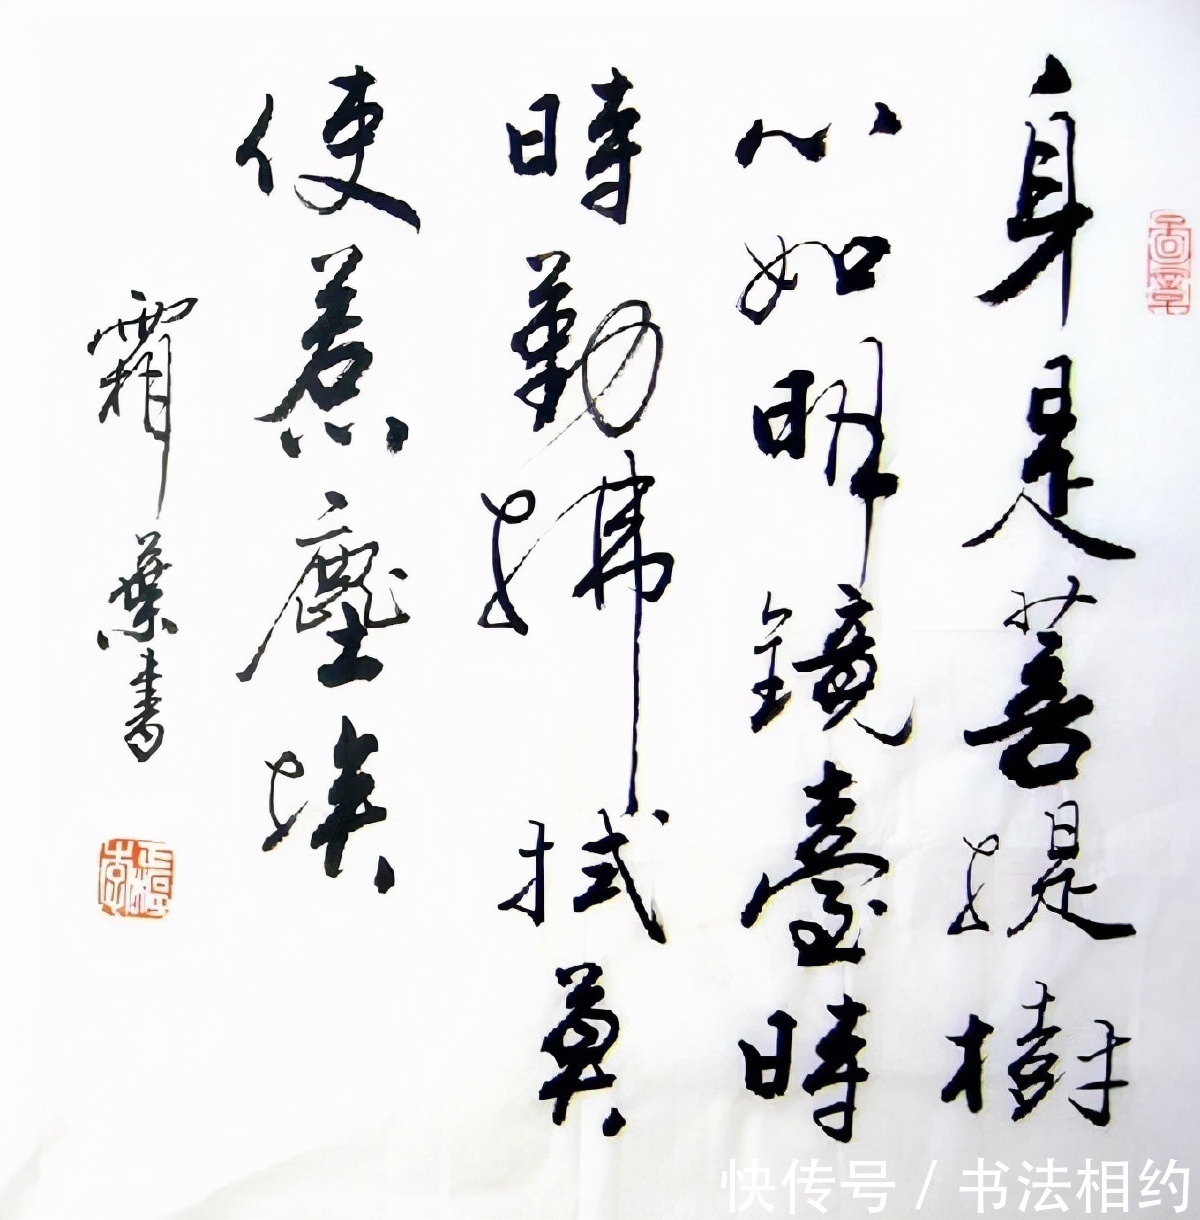 身是菩提樹
心如明鏡臺時
時勤拂拭莫
使惹塵埃
霜葉書
快传号 / 书法相约